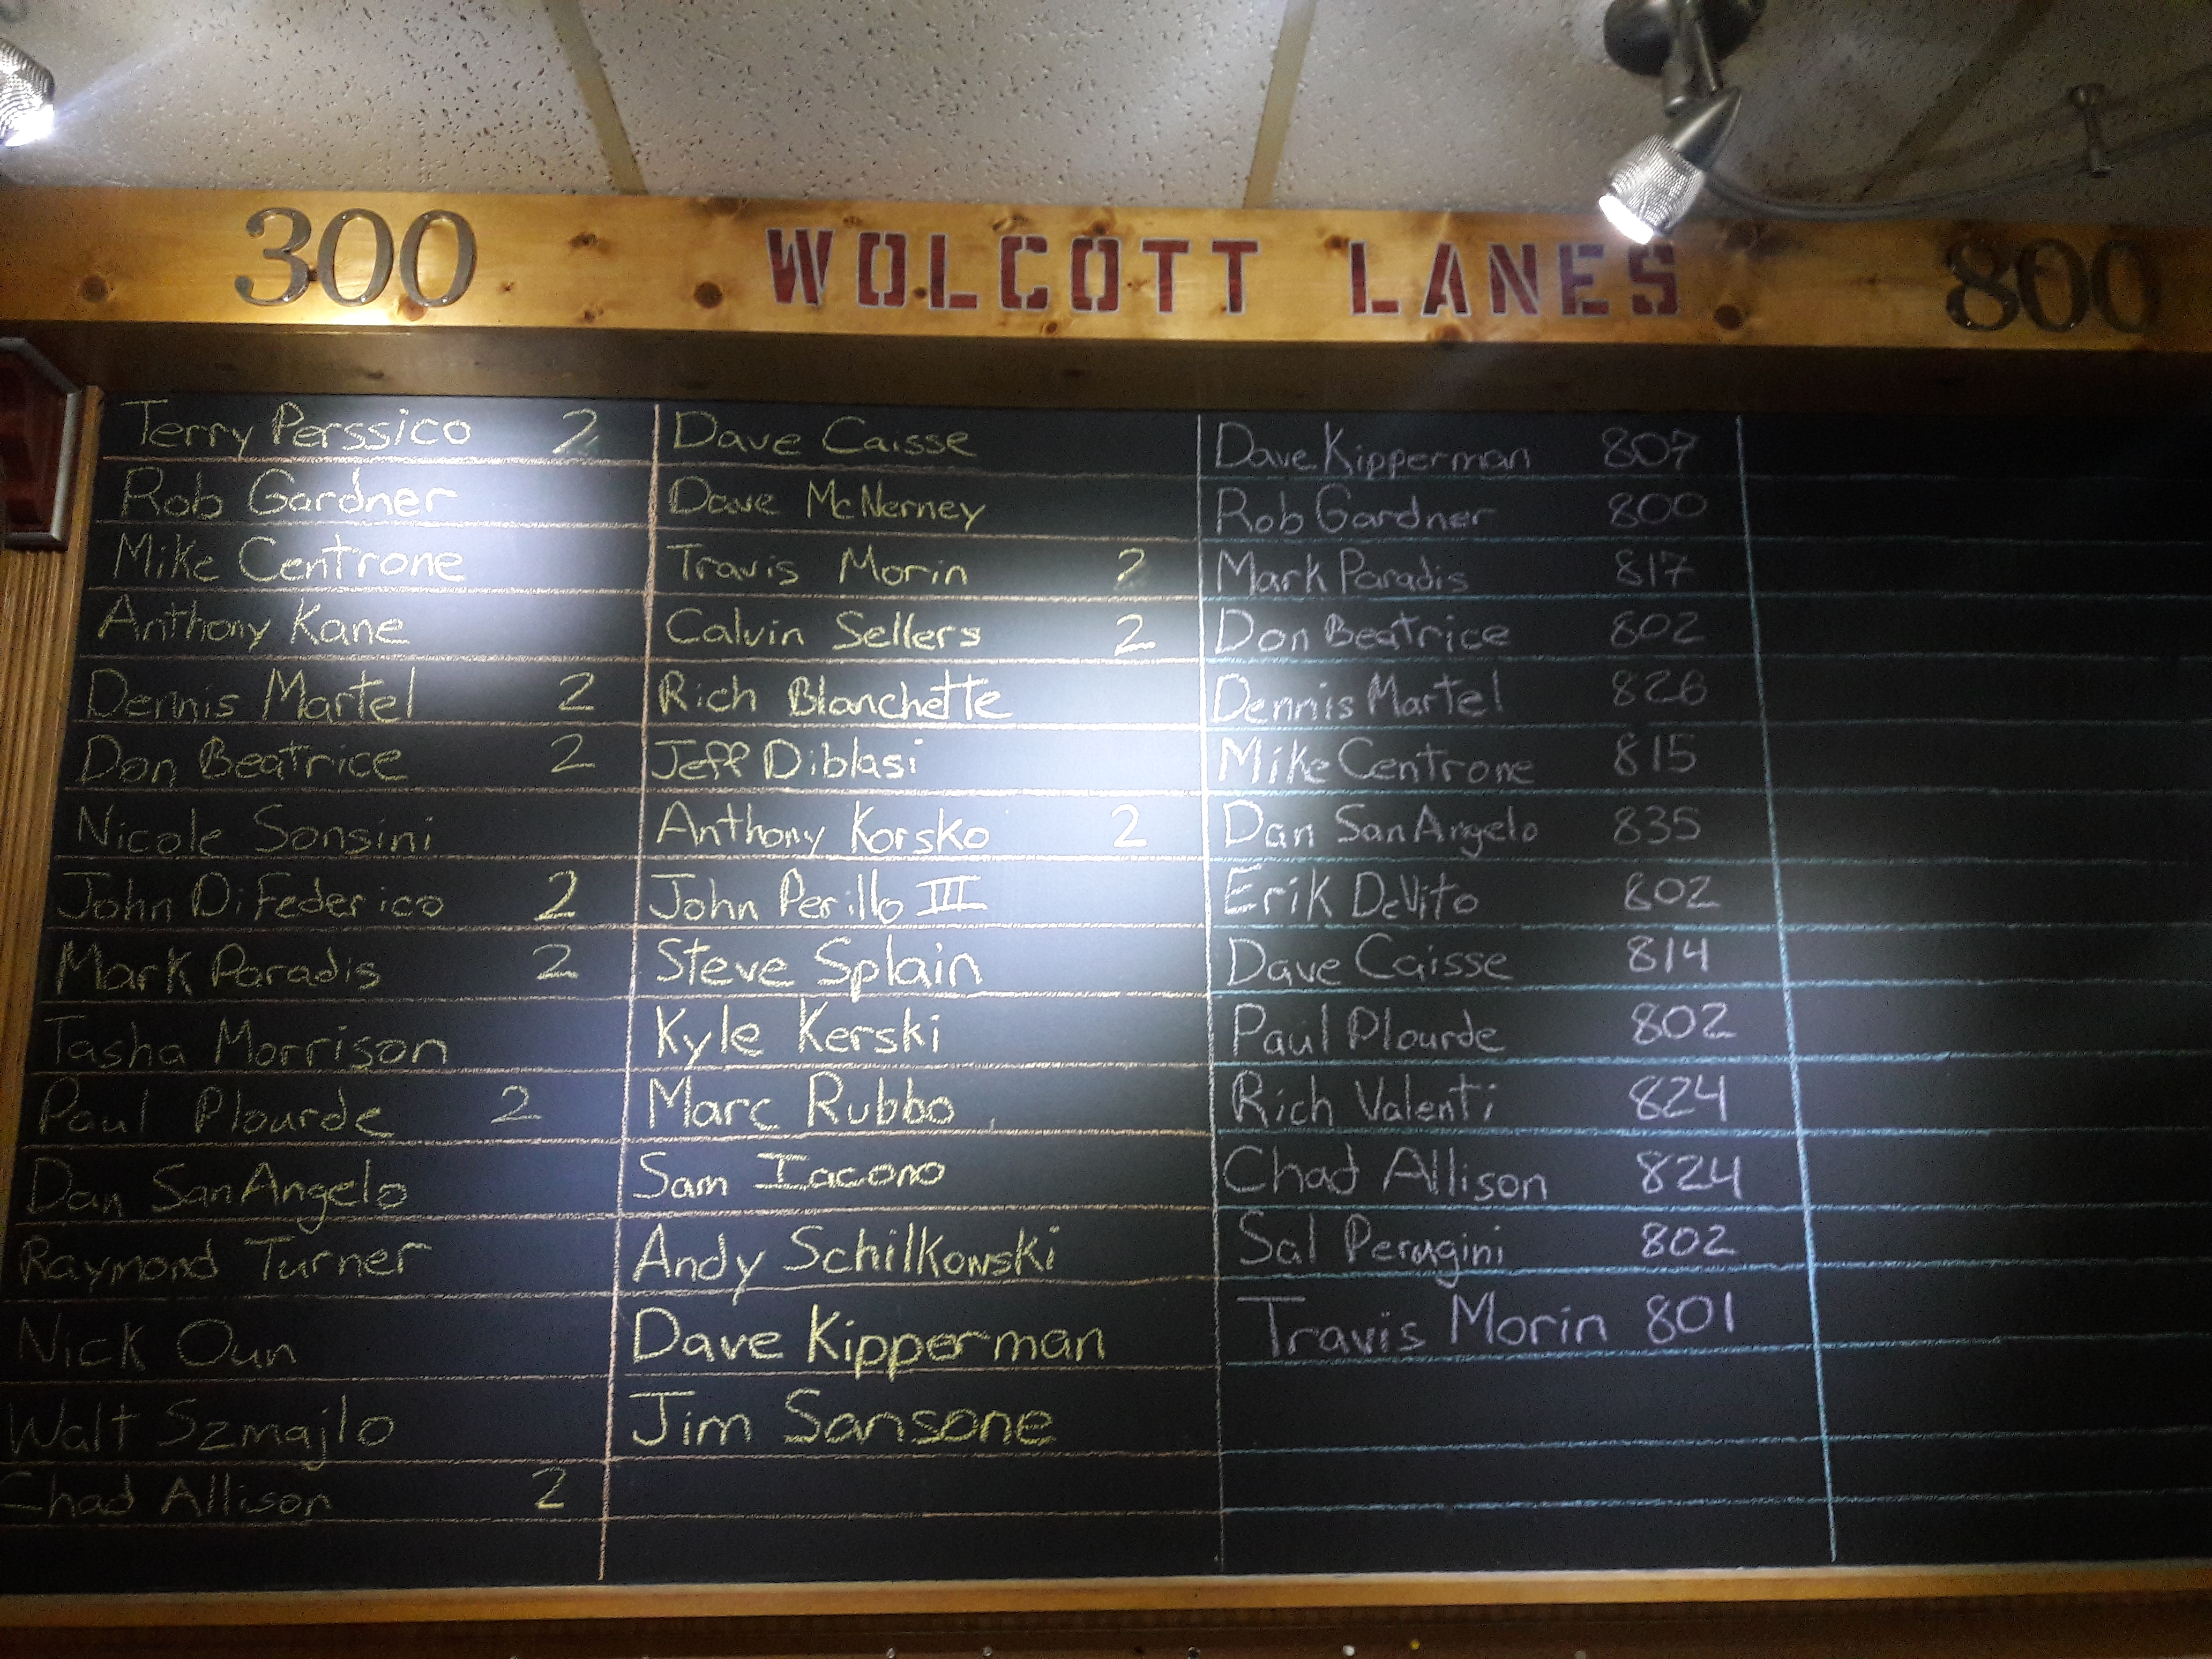 300 WOLCOTT LANES 800
Terry Perssico 2
Rob Gardner
Mike Centrone
Anthony Kane
Dennis Martel 2
Don Beatrice 2
Nicole Sonsini
John DiFederico 2
Mark Paradis 2
Tasha Morrison
Paul Plourde 2
Dan SanAngelo
Raymond Turner
Nick Oun
Walt Szmajlo
Chad Allison 2
Dave Caisse
Dave McNerney
Travis Morin 2
Calvin Sellers 2
Rich Blanchette
Jeff Diblasi
Anthony Korsko 2
John Perillo III
Steve Splain
Kyle Kerski
Marc Rubbo
Sam Iacono
Andy Schilkowski
Dave Kipperman
Jim Sansone
Dave Kipperman 807
Rob Gardner 800
Mark Paradis 817
Don Beatrice 802
Dennis Martel 826
Mike Centrone 815
Dan SanAngelo 835
Erik DeVito 802
Dave Caisse 814
Paul Plourde 802
Rich Valenti 824
Chad Allison 824
Sal Perugini 802
Travis Morin 801